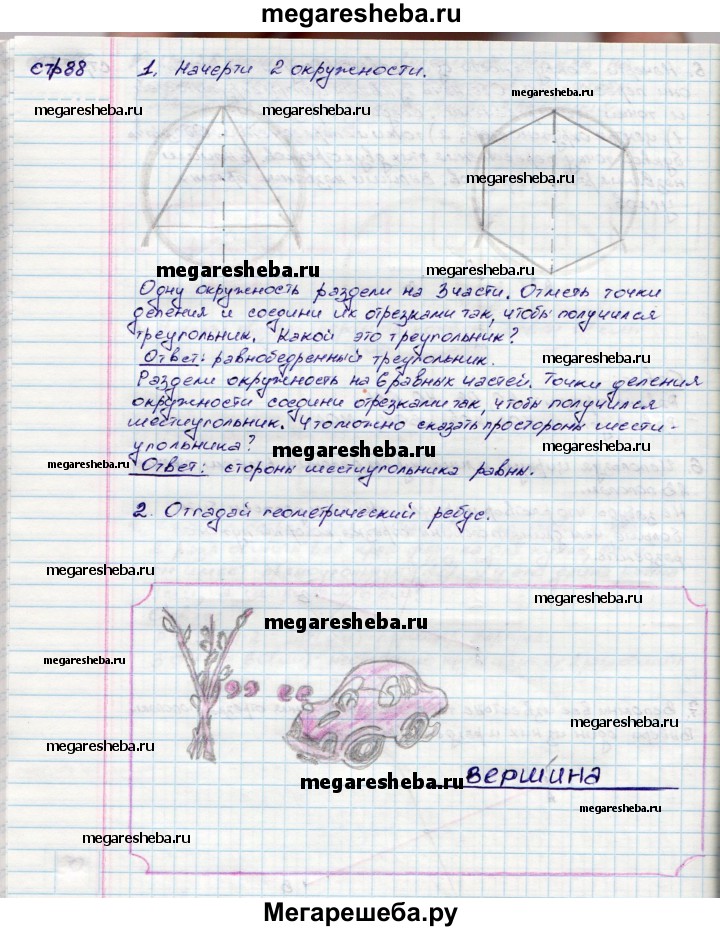 megaresheba.ru
стр88 1. Начерти 2 окружности.
megaresheba.ru
megaresheba.ru
megaresheba.ru
megaresheba.ru
megaresheba.ru
Одну окружность раздели на 3 части. Отметь точки
деления и соедини их отрезками так, чтобы получился
треугольник. Какой это треугольник?
Ответ: равнобедренный треугольник.
megaresheba.ru
Раздели окружность на 6 равных частей. Точки деления
окружности соедини отрезками так, чтобы получился
шестиугольник. Что можно сказать про стороны шести-
угольника?
megaresheba.ru
megaresheba.ru
Ответ: стороны шестиугольника равны.
2. Отгадай геометрический ребус.
megaresheba.ru
megaresheba.ru
megaresheba.ru
megaresheba.ru
megaresheba.ru
megaresheba.ru
вершина
megaresheba.ru
megaresheba.ru
megaresheba.ru
Мегарешеба.ру